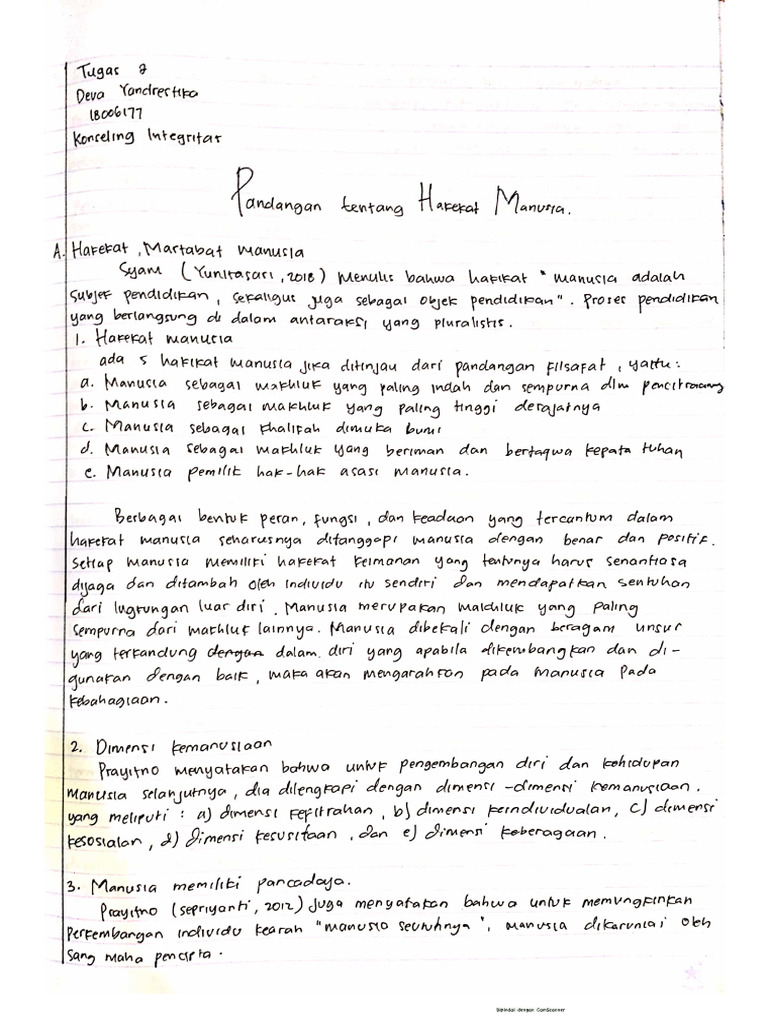 Tugas 2
Deva Yandrestika
18006177
Konseling Integritas
Pandangan tentang Hakekat Manusia.
A. Hakekat, Martabat manusia
Syam (Yunitasari, 2018) menulis bahwa hakikat "manusia adalah
subjek pendidikan, sekaligus juga sebagai objek pendidikan". Proses pendidikan
yang berlangsung di dalam antaraksi yang pluralistis.
1. Hakekat manusia
ada 5 hakikat manusia jika ditinjau dari pandangan filsafat, yaitu:
a. Manusia sebagai makhluk yang paling indah dan sempurna dlm pencitraang
b. Manusia sebagai makhluk yang paling tinggi derajatnya
c. Manusia sebagai khalifah dimuka bumi
d. Manusia sebagai makhluk yang beriman dan bertaqwa kepata tuhan
e. Manusia pemilik hak-hak asasi manusia.
Berbagai bentuk peran, fungsi, dan keadaan yang tercantum dalam
hakekat manusia seharusnya ditanggapi manusia dengan benar dan positif.
Setiap manusia memiliki hakekat keimanan yang tentunya harus senantiasa
dijaga dan ditambah oleh individu itu sendiri dan mendapatkan sentuhan
dari lugkungan luar diri. Manusia merupakan makhluk yang paling
sempurna dari makhluk lainnya. Manusia dibekali dengan beragam unsur
yang terkandung dengan dalam diri yang apabila dikembangkan dan di-
gunakan dengan baik, maka akan mengarahkan pada manusia pada
kebahagiaan.
2. Dimensi kemanusiaan
Prayitno menyatakan bahwa untuk pengembangan diri dan kehidupan
manusia selanjutnya, dia dilengkapi dengan dimensi-dimensi kemanusiaan.
yang meliputi: a) dimensi kefitrahan, b) dimensi keindividualan, c) dimensi
kesosialan, d) dimensi kesusilaan, dan e) dimensi keberagaan.
3. Manusia memiliki pancadaya.
Prayitno (sepriyanti, 2012) juga menyatakan bahwa untuk memungkinkan
perkembangan individu kearah "manusia seutuhnya", manusia dikaruniai oleh
sang maha pencipta.
Dipindai dengan CamScanner